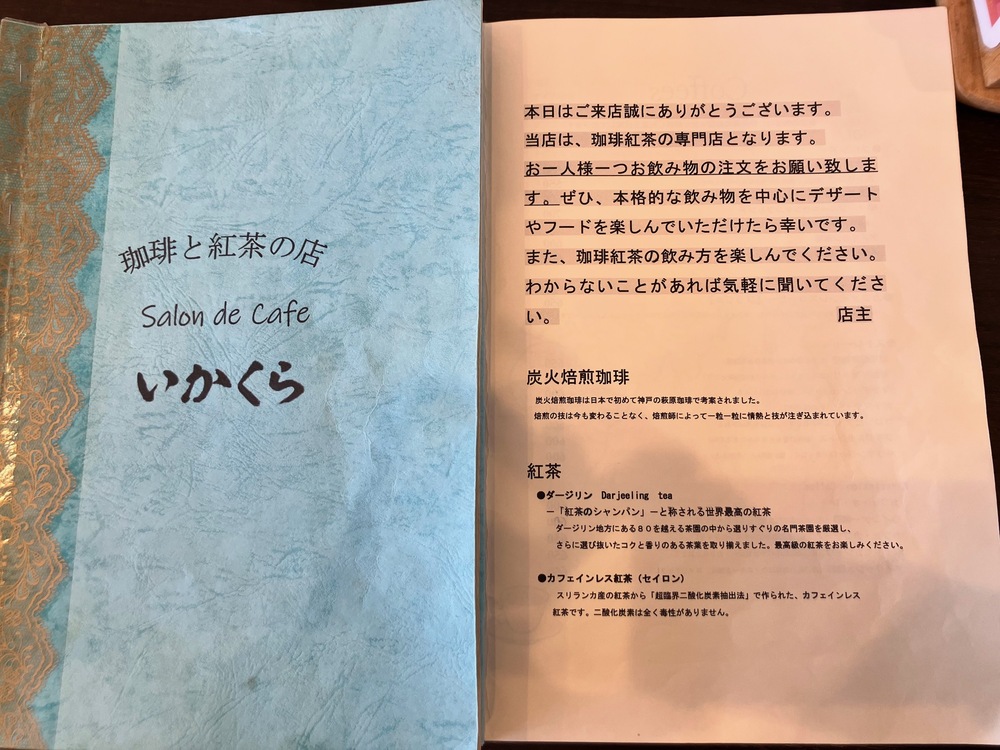 珈琲と紅茶の店
Salon de Cafe
いかくら
本日はご来店誠にありがとうございます。
当店は、珈琲紅茶の専門店となります。
お一人様一つお飲み物の注文をお願い致しま
す。ぜひ、本格的な飲み物を中心にデザート
やフードを楽しんでいただけたら幸いです。
また、珈琲紅茶の飲み方を楽しんでください。
わからないことがあれば気軽に聞いてくださ
い。 店主
炭火焙煎珈琲
炭火焙煎珈琲は日本で初めて神戸の萩原珈琲で考案されました。
焙煎の技は今も変わることなく、焙煎師によって一粒一粒に情熱と技が注ぎ込まれています。
紅茶
●ダージリン Darjeeling tea
－「紅茶のシャンパン」－と称される世界最高の紅茶
ダージリン地方にある80を越える茶園の中から選りすぐりの名門茶園を厳選し、
さらに選び抜いたコクと香りのある茶葉を取り揃えました。最高級の紅茶をお楽しみください。
●カフェインレス紅茶（セイロン）
スリランカ産の紅茶から「超臨界二酸化炭素抽出法」で作られた、カフェインレス
紅茶です。二酸化炭素は全く毒性がありません。